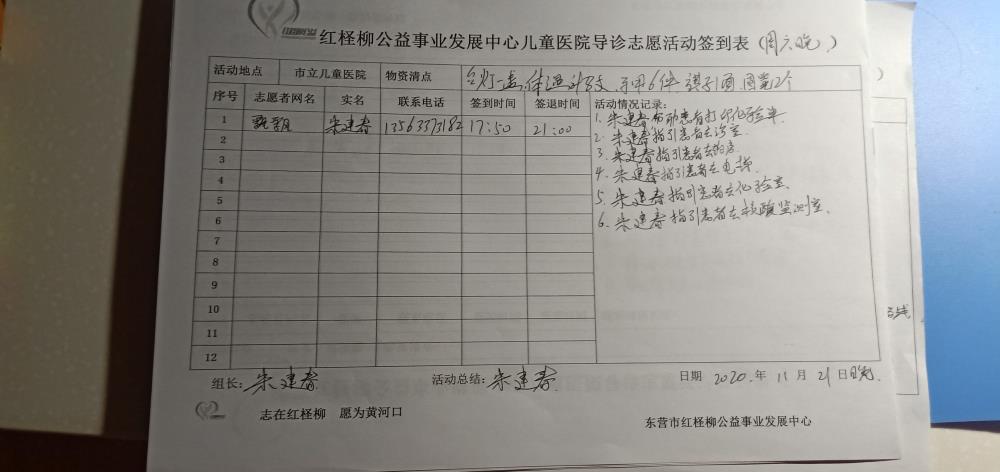 红柽柳公益事业发展中心儿童医院导诊志愿活动签到表（周六晚）
活动地点 市立儿童医院 物资清点 台灯一盏,体温计3支 马甲6件 旗子1面
序号 志愿者网名 实名 联系电话 签到时间 签退时间 活动情况记录：
1 朱建春 13563373182 17:50 21:00
2
3
4
5
6
7
8
9
10
11
12
1. 朱建春帮助患者打印化验单.
2. 朱建春指引患者去诊室.
3. 朱建春指引患者去
4. 朱建春指引患者去电梯.
5. 朱建春指引患者去化验室.
6. 朱建春指引患者去核酸监测室.
组长：朱建春 活动总结：朱建春 日期 2020.年 11 月 21 日
志在红柽柳 愿为黄河口
东营市红柽柳公益事业发展中心